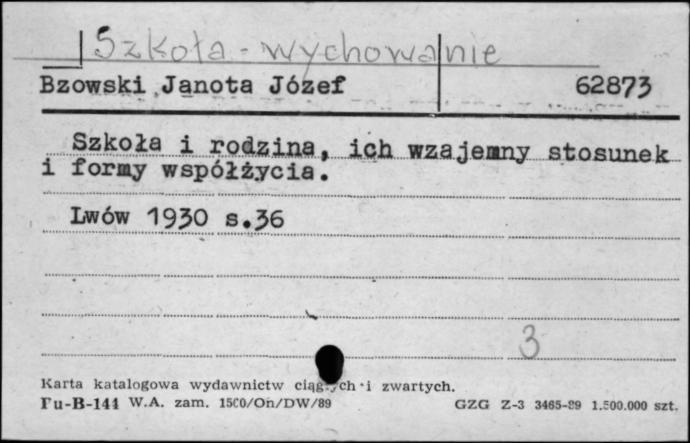 Szkoła - wychowanie
Bzowski Janota Józef 62873
Szkoła i rodzina, ich wzajemny stosunek
i formy współżycia.
Lwów 1930 s.36
3
Karta katalogowa wydawnictw i zwartych.
Pu-B-144 W.A. zam. 1500/On/DW/89 GZG Z-3 3465-89 1.500.000 szt.